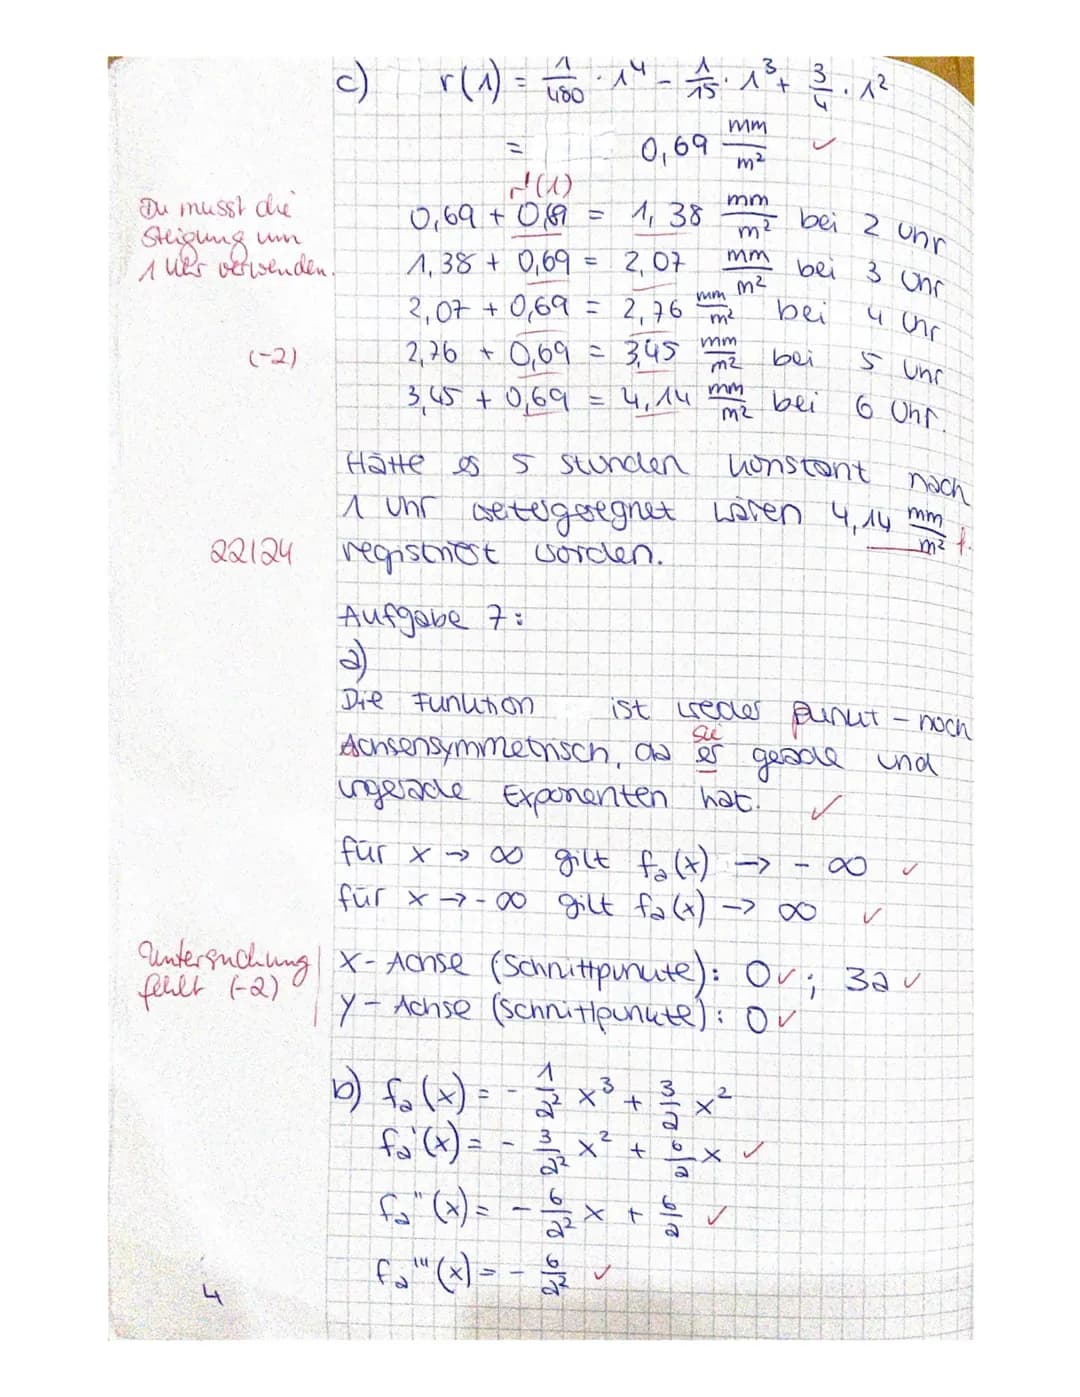 c) r(1) = 1/480 · 1⁴ - 1/15 · 1³ + 3/4 · 1²
= 0,69 mm/m² ✓
r'(1)
Du musst die
Steigung um
1 Uhr verwenden.
0,69 + 0,69 = 1,38 mm/m² bei 2 Uhr
1,38 + 0,69 = 2,07 mm/m² bei 3 Uhr
2,07 + 0,69 = 2,76 mm/m² bei 4 Uhr
(-2)
2,76 + 0,69 = 3,45 mm/m² bei 5 Uhr
3,45 + 0,69 = 4,14 mm/m² bei 6 Uhr.
Hätte es 5 stunden konstant nach
1 Uhr weitergeregnet wären 4,14 mm/m² f.
22/24
registriert worden.
Aufgabe 7:
a)
Die Funktion ist weder punkt - noch
sie
Achsensymmetrisch, da es gerade und
ungerade Exponenten hat. ✓
für x → ∞ gilt fₐ(x) → - ∞ ✓
für x → - ∞ gilt fₐ(x) → ∞ ✓
Untersuchung
fehlt (-2)
x - Achse (Schnittpunkte): 0 ✓ ; 3a ✓
y - Achse (Schnittpunkte): 0 ✓
b) fₐ(x) = - 1/a² x³ + 3/a x²
fₐ'(x) = - 3/a² x² + 6/a x ✓
fₐ''(x) = - 6/a² x + 6/a ✓
fₐ'''(x) = - 6/a² ✓
4